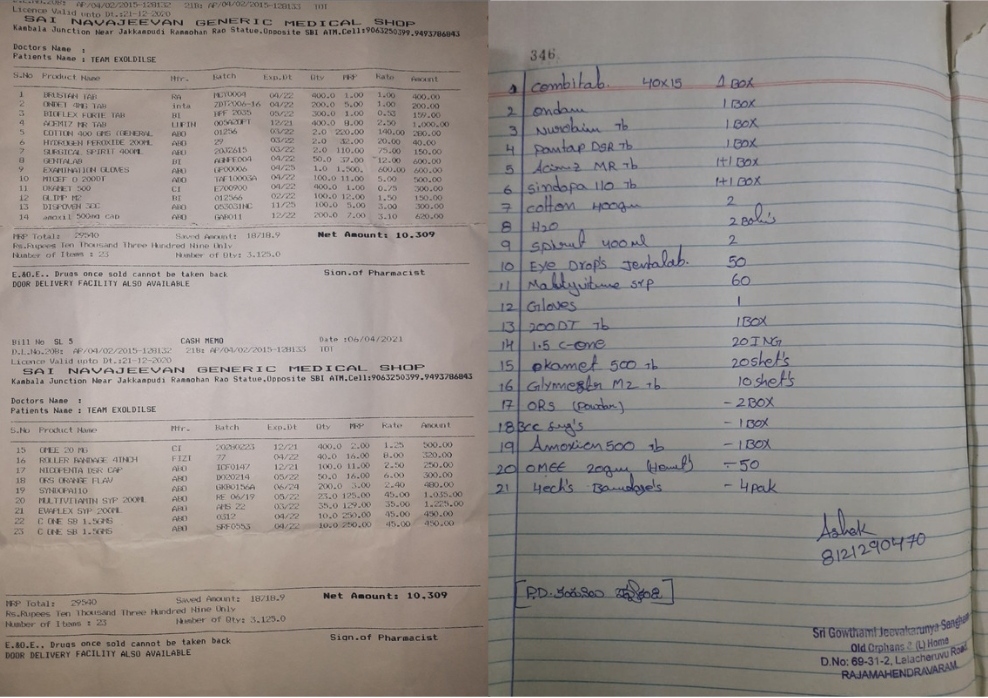 D.L.No.20B: AP/04/02/2015-128132 21B: AP/04/02/2015-128133 TOT
Licence Valid upto Dt.:21-12-2020
SAI NAVAJEEVAN GENERIC MEDICAL SHOP
Kambala Junction Near Jakkampudi Rammohan Rao Statue.Opposite SBI ATM.Cell:9063250399.9493786843
Doctors Name :
Patients Name : TEAM EXOLDILSE
S.No Product Name Mfr. Batch Exp.Dt Qty MRP Rate Amount
1 DRUSTAN TAB 04/22 400.0 1.00 1.00 400.00
2 ONDET 4MG TAB inta ZDT2006-16 04/22 200.0 5.00 1.00 200.00
3 BIOFLEX FORTE TAB BI BPF 2035 05/22 300.0 1.00 0.53 159.00
4 ACEMIZ MR TAB LUPIN 12/21 400.0 8.00 2.50 1,000.00
5 COTTON 400 GMS (GENERAL ABO 01256 03/22 2.0 220.00 140.00 280.00
6 HYDROGEN PEROXIDE 200ML ABO 29 03/22 2.0 32.00 20.00 40.00
7 SURGICAL SPIRIT 400ML ABO 2032615 03/22 2.0 110.00 75.00 150.00
8 GENTALAB BI 04/22 50.0 37.00 12.00 600.00
9 EXAMINATION GLOVES ABO GP00006 04/25 1.0 1,500. 600.00 600.00
10 MICEF O 200DT ABO TAF10003A 04/22 100.0 11.00 5.00 500.00
11 OKAMET 500 CI E700900 04/22 400.0 1.00 0.75 300.00
12 GLIMP M2 BI 012566 02/22 100.0 12.00 1.50 150.00
13 DISPOVEN 3CC ABO 053031NC 11/25 100.0 5.00 3.00 300.00
14 amoxil 500mg CAP ABO GAB011 12/22 200.0 7.00 3.10 620.00
MRP Total: 29540 Saved Amount: 18718.9 Net Amount: 10.309
Rs.Rupees Ten Thousand Three Hundred Nine Only
Number of Items : 23 Number of Qty: 3,125.0
E.&O.E.. Drugs once sold cannot be taken back Sion.of Pharmacist
DOOR DELIVERY FACILITY ALSO AVAILABLE
Bill No SL 5 CASH MEMO Date :06/04/2021
D.L.No.20B: AP/04/02/2015-128132 21B: AP/04/02/2015-128133 TOT
Licence Valid upto Dt.:21-12-2020
SAI NAVAJEEVAN GENERIC MEDICAL SHOP
Kambala Junction Near Jakkampudi Rammohan Rao Statue.Opposite SBI ATM.Cell:9063250399.9493786843
Doctors Name :
Patients Name : TEAM EXOLDILSE
S.No Product Name Mfr. Batch Exp.Dt Qty MRP Rate Amount
15 OMEE 20 MG CI 20280223 12/21 400.0 2.00 1.25 500.00
16 ROLLER BANDAGE 4INCH FIZI 77 04/22 40.0 16.00 8.00 320.00
17 NICOPENTA DSR CAP ABO ICF0147 12/21 100.0 11.00 2.50 250.00
18 ORS ORANGE FLAV ABO DO20214 05/22 50.0 16.00 6.00 300.00
19 SYNDOPA110 ABO GKB0156A 06/24 200.0 3.00 2.40 480.00
20 MULTIVITAMIN SYP 200ML ABO RE 06/19 05/22 23.0 125.00 45.00 1,035.00
21 EVAPLEX SYP 200ML ABO AMS 22 03/22 35.0 129.00 35.00 1,225.00
22 C ONE SB 1.5GMS ABO 0312 04/22 10.0 250.00 45.00 450.00
23 C ONE SB 1.5GMS ABO SRF0553 04/22 10.0 250.00 45.00 450.00
MRP Total: 29540 Saved Amount: 18718.9 Net Amount: 10.309
Rs.Rupees Ten Thousand Three Hundred Nine Only
Number of Items : 23 Number of Qty: 3,125.0
E.&O.E.. Drugs once sold cannot be taken back Sion.of Pharmacist
DOOR DELIVERY FACILITY ALSO AVAILABLE
346
1 Combitab. 40x15 1 BOX
2 ondam 1 BOX
3 Nurobin Tb 1 BOX
4 Pantap DSR Tb 1 BOX
5 Acimiz MR Tb 1+1 BOX
6 Sindopa 110 Tb 1+1 BOX
7 cotton 400gm 2
8 H2O 2
9 Spirut 400ml 2
10 Eye Drop's Jentalab. 50
11 syp 60
12 Gloves 1
13 200DT Tb 1BOX
14 1.5 C-one 20ING
15 okamet 500 Tb 20shet's
16 M2 Tb 10shet's
17 ORS - 2BOX
18 3cc - 1BOX
19 Amoxicin 500 Tb - 1BOX
20 OMEE 20gm - 50
21 - 4pak
Ashok
8121290470
Sri Gowthami Jeevakarunya Sangham
Old Orphans (L) Home
D.No: 69-31-2, Lalacheruvu Road
RAJAMAHENDRAVARAM.